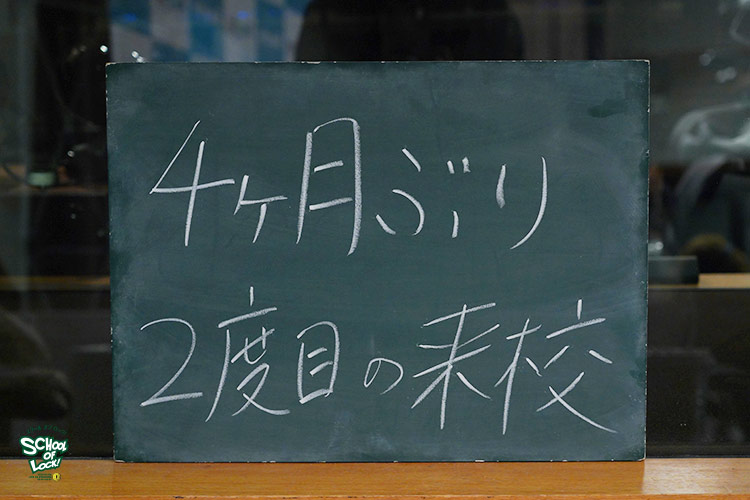 4ヶ月ぶり
2度目の来校
SCHOOL
OF
LOCK!